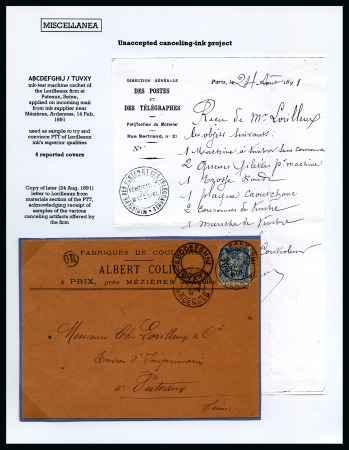 MISCELLANEA
Unaccepted canceling-ink project
ABCDEFGHIJ / TUVXY
ink-test machine cachet of
the Lorilleux firm at
Puteaux, Seine,
applied on incoming mail
from ink supplier near
Mézières, Ardennes, 14 Feb.
1891
used as sample to try and
convince PTT of Lorilleux
ink's superior qualities
4 reported covers
Copy of later (24 Aug. 1891)
letter to Lorilleux from
materials section of the PTT,
acknowledging receipt of
samples of the various
canceling artifacts offered by
the firm
DIRECTION GÉNÉRALE
DES POSTES
ET
DES TÉLÉGRAPHES
Vérification du Matériel
Rue Bertrand, n° 21
N°
Paris, le 24 Août 1891
Reçu de Mr Lorilleux
les objets suivants:
1 Machine à timbrer
2
1
1 plaque Caoutchouc
2 Couronnes de timbre
1 manche de timbre
FABRIQUES DE
ALBERT COLI
A PRIX, près MÉZIÈRES
ABCDEFGHIJ
ARDENNES
Messieurs Ch. Lorilleux & Cie
Encres d'Imprimerie
à Puteaux
Seine